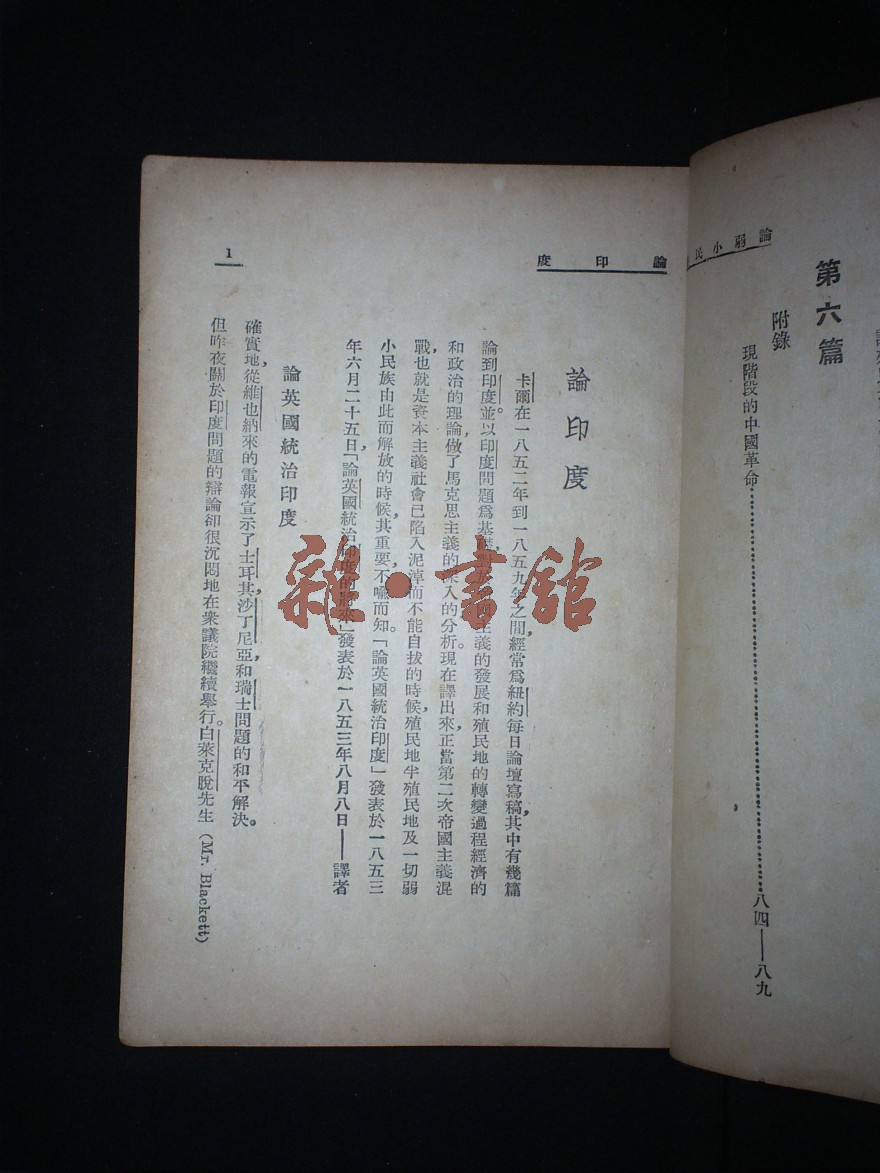 論弱小民
第六篇
附錄
現階段的中國革命……八四——八九
論印度
1
論印度
卡爾在一八五二年到一八五九年之間,經常爲紐約每日論壇寫稿,其中有幾篇
論到印度。並以印度問題爲基礎,對於主義的發展和殖民地的轉變過程經濟的
和政治的理論,做了馬克思主義的深入的分析。現在譯出來,正當第二次帝國主義混
戰,也就是資本主義社會已陷入泥淖而不能自拔的時候,殖民地半殖民地及一切弱
小民族由此而解放的時候,其重要不喩而知。「論英國統治印度」發表於一八五三
年六月二十五日,「論英國統治印度的將來」發表於一八五三年八月八日——譯者
論英國統治印度
確實地,從維也納來的電報宣示了土耳其,沙丁尼亞,和瑞士問題的和平解決。
但昨夜關於印度問題的辯論卻很沉悶地在衆議院繼續舉行。白萊克脫先生 (Mr. Blackett)
雜·書館